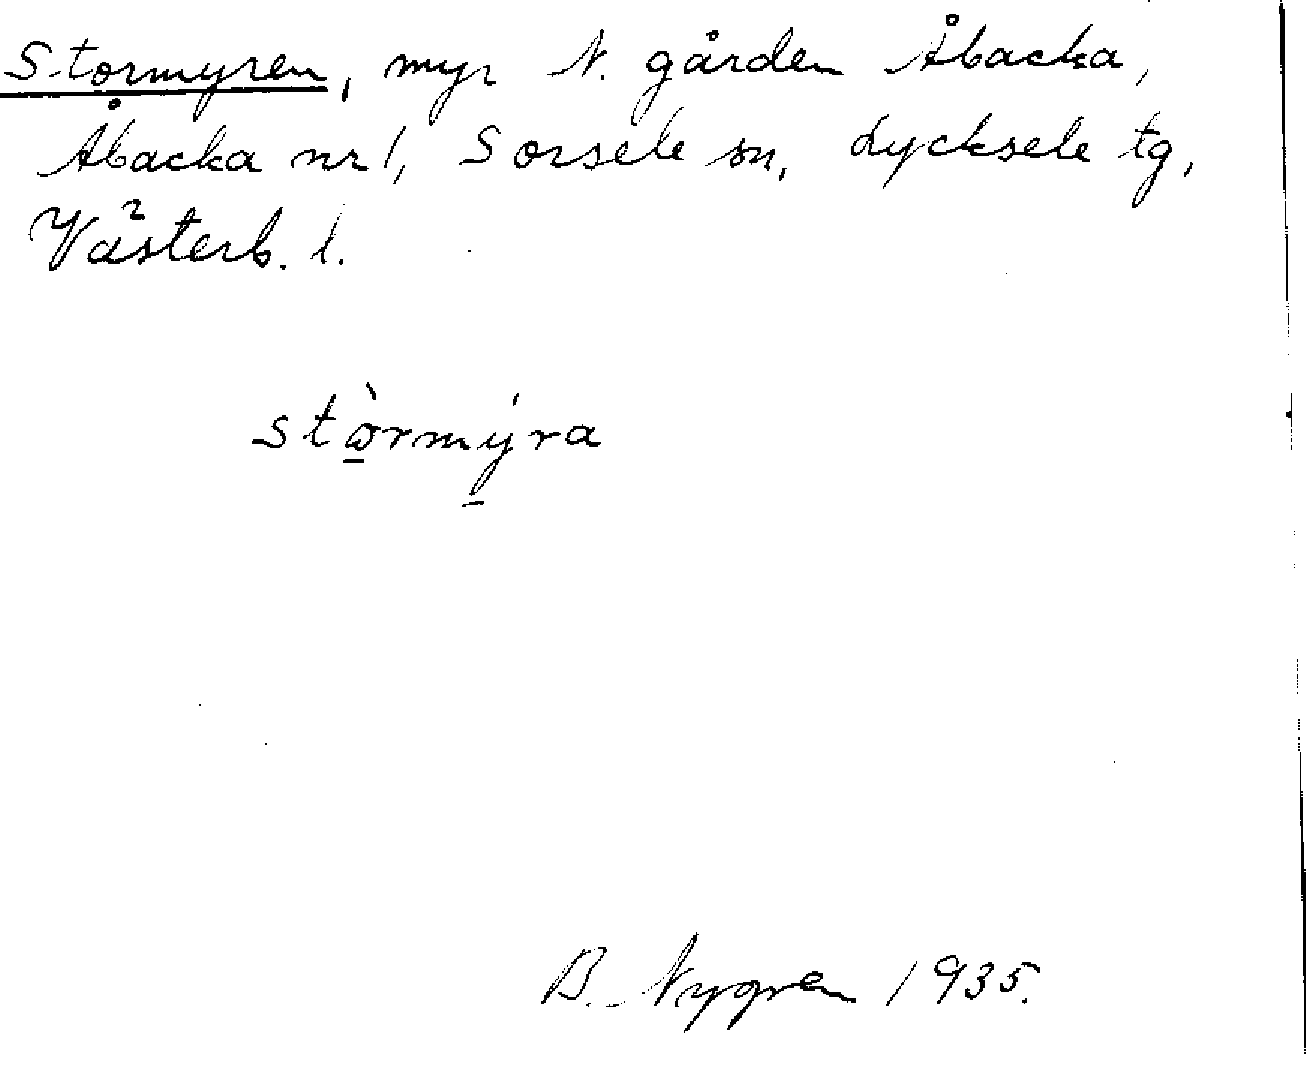 Stormyren, myr N. gården Åbacka,
Åbacka nr 1, Sorsele sn, Lycksele tg,
Västerb. l.
stò̱rmý̱ra
B. Nygren 1935.